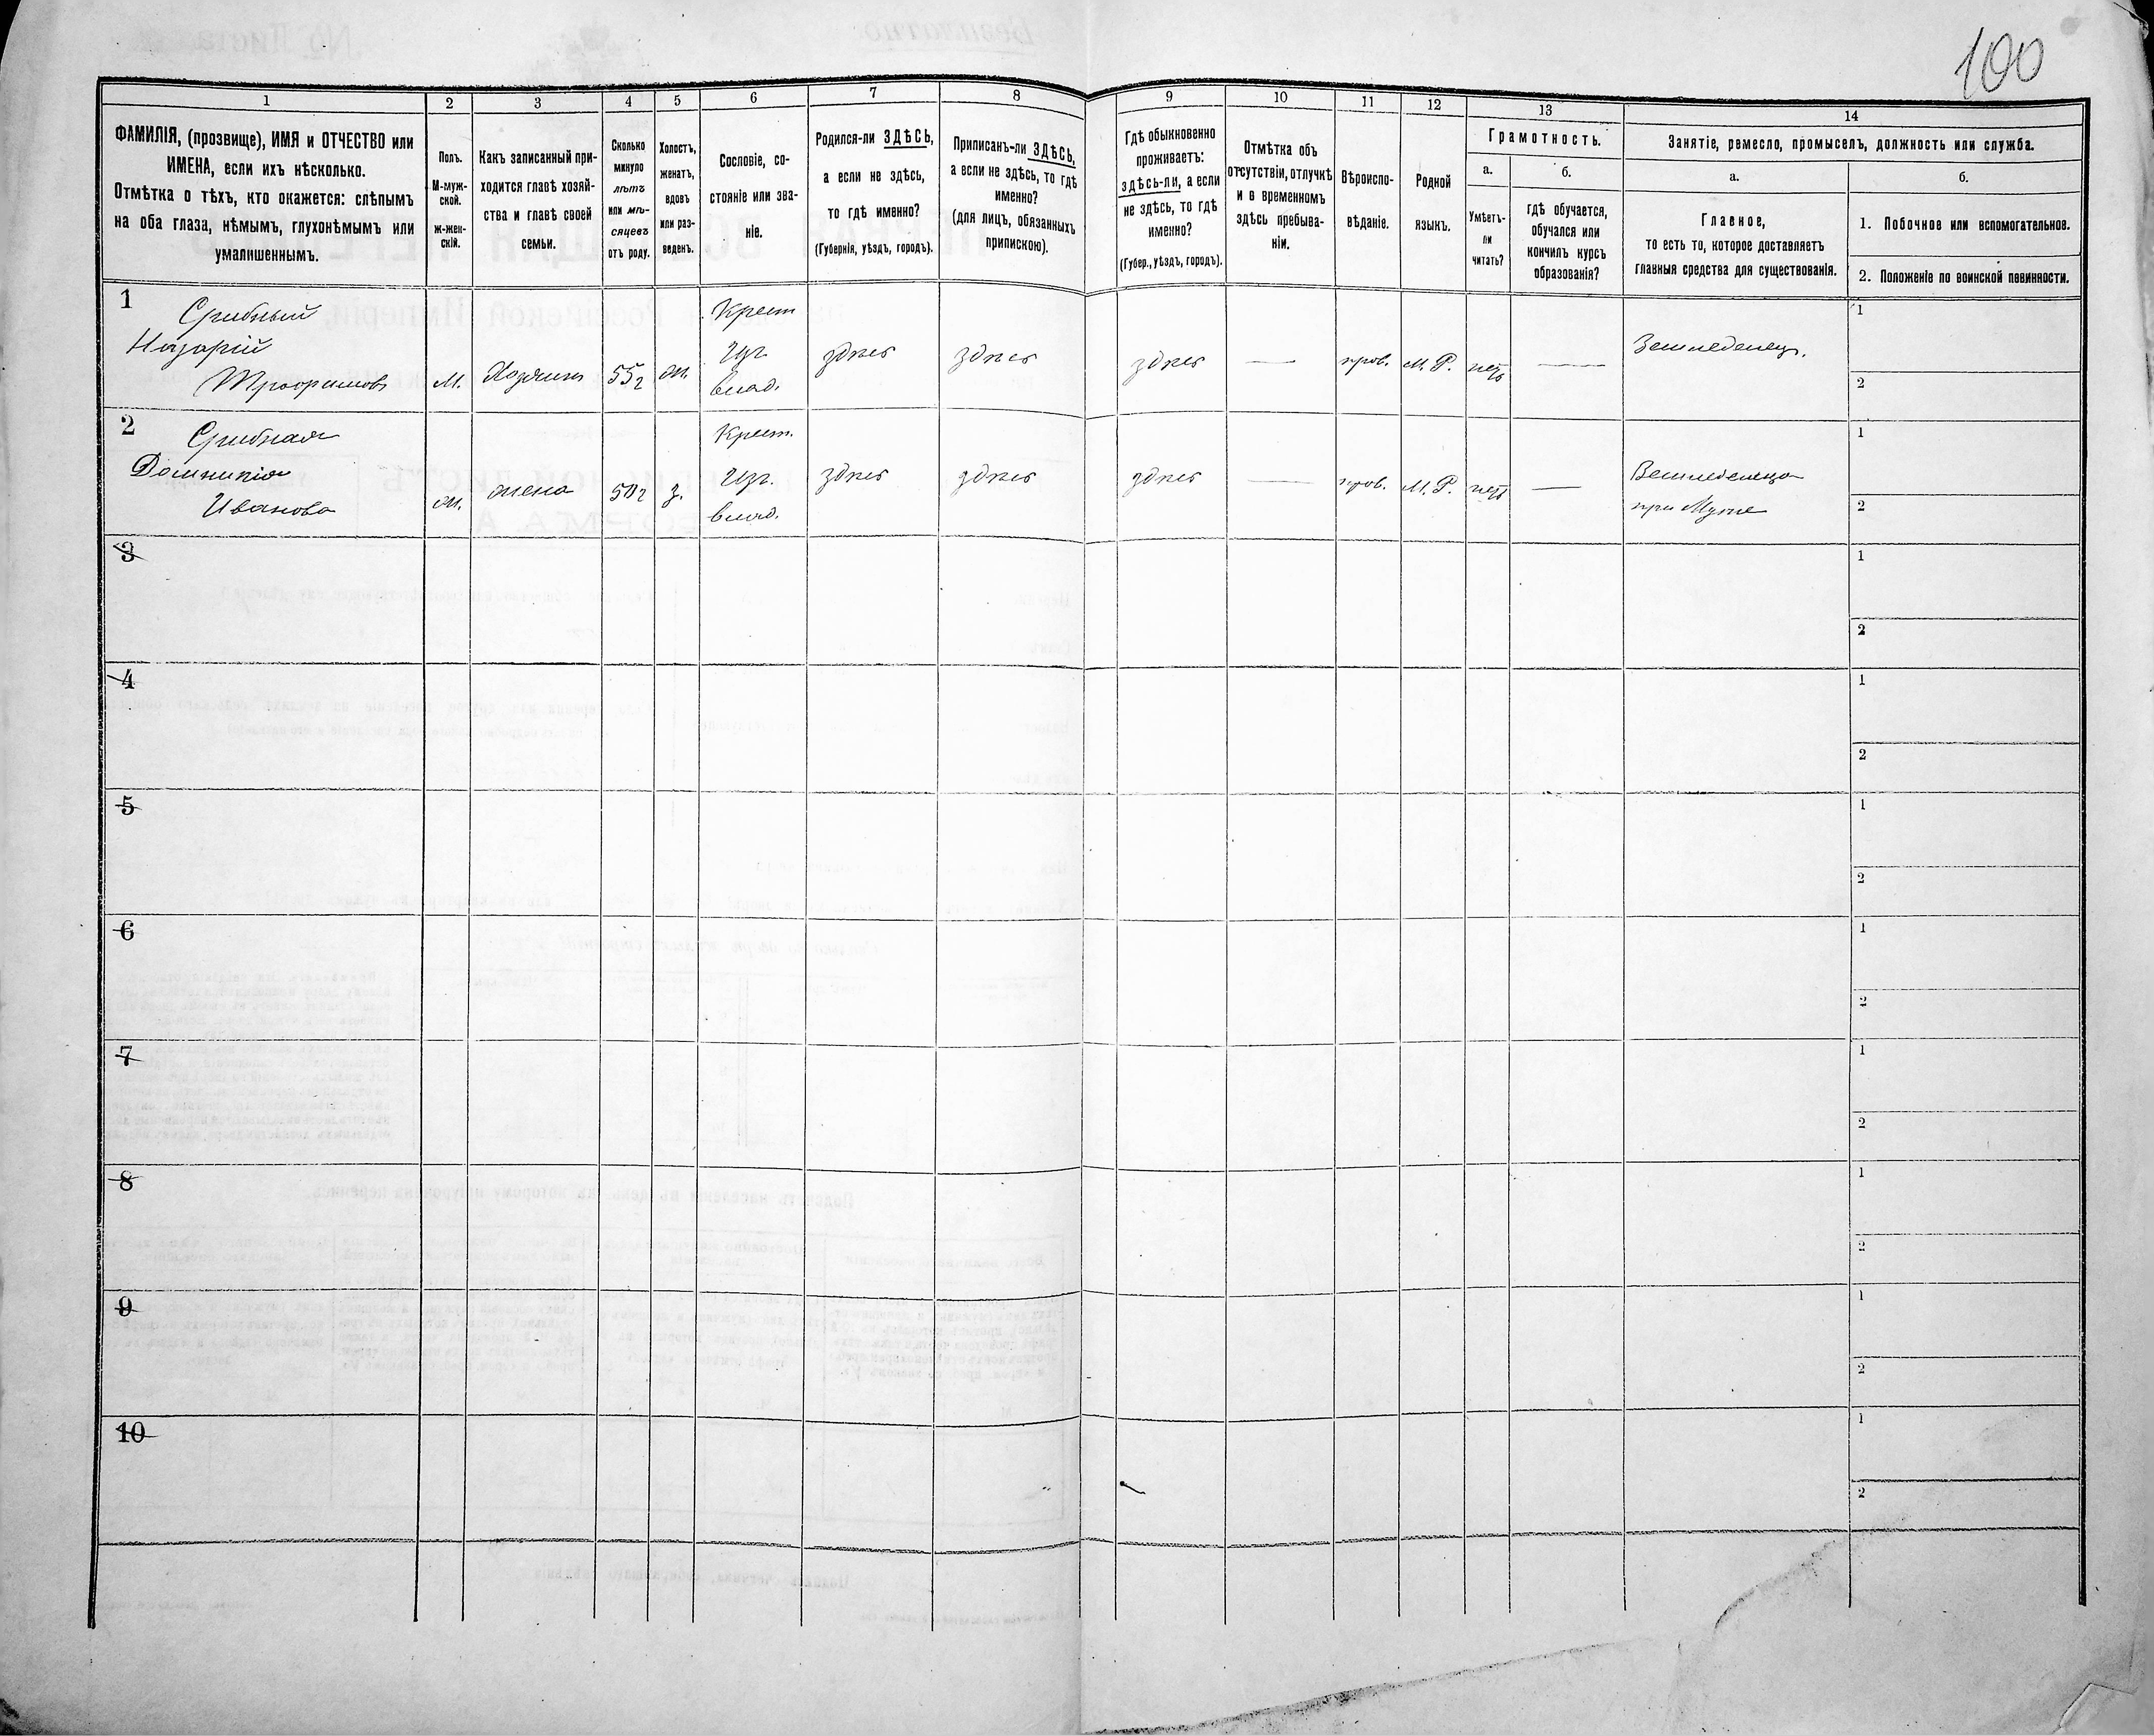 100
1
2
3
4
5
6
7
8
9
10
11
12
13
14
ФАМИЛІЯ, (прозвище), ИМЯ и ОТЧЕСТВО или
ИМЕНА, если ихъ нѣсколько.
Отмѣтка о тѣхъ, кто окажется: слѣпымъ
на оба глаза, нѣмымъ, глухонѣмымъ или
умалишеннымъ.
Полъ.
М-муж-
ской.
ж-жен-
скій.
Какъ записанный при-
ходится главѣ хозяй-
ства и главѣ своей
семьи.
Сколько
минуло
лѣтъ
или мѣ-
сяцевъ
отъ роду.
Холостъ,
женатъ,
вдовъ
или раз-
веденъ.
Сословіе, со-
стояніе или зва-
ніе.
Родился-ли ЗДѢСЬ,
а если не здѣсь,
то гдѣ именно?
(Губернія, уѣздъ, городъ).
Приписанъ-ли ЗДѢСЬ,
а если не здѣсь, то гдѣ
именно?
(для лицъ, обязанныхъ
припискою).
Гдѣ обыкновенно
проживаетъ:
здѣсь-ли, а если
не здѣсь, то гдѣ
именно?
(Губер., уѣздъ, городъ).
Отмѣтка объ
отсутствіи, отлучкѣ
и в временномъ
здѣсь пребыва-
ніи.
Вѣроиспо-
вѣданіе.
Родной
языкъ.
Грамотность.
а.
б.
Умѣетъ-
ли
читать?
гдѣ обучается,
обучался или
кончилъ курсъ
образованія?
Занятіе, ремесло, промыселъ, должность или служба.
а.
б.
Главное,
то есть то, которое доставляетъ
главныя средства для существованія.
1. Побочное или вспомогательное.
2. Положеніе по воинской повинности.
1
Срибный
Назарій
Трофимовъ
М.
Хозяинъ
55 г
ж.
Крест
Изъ
влад.
здѣсь
здѣсь
здѣсь
—
прав.
М. Р.
нетъ
—
Земледелец.
1
2
2
Срибная
Домникія
Иванова
ж.
жена
50 г
з.
Крест.
Изъ.
влад.
здѣсь
здѣсь
здѣсь
—
прав.
М. Р.
нетъ
—
Земледелица
при Муже
1
2
3
1
2
4
1
2
5
1
2
6
1
2
7
1
2
8
1
2
9
1
2
10
1
2